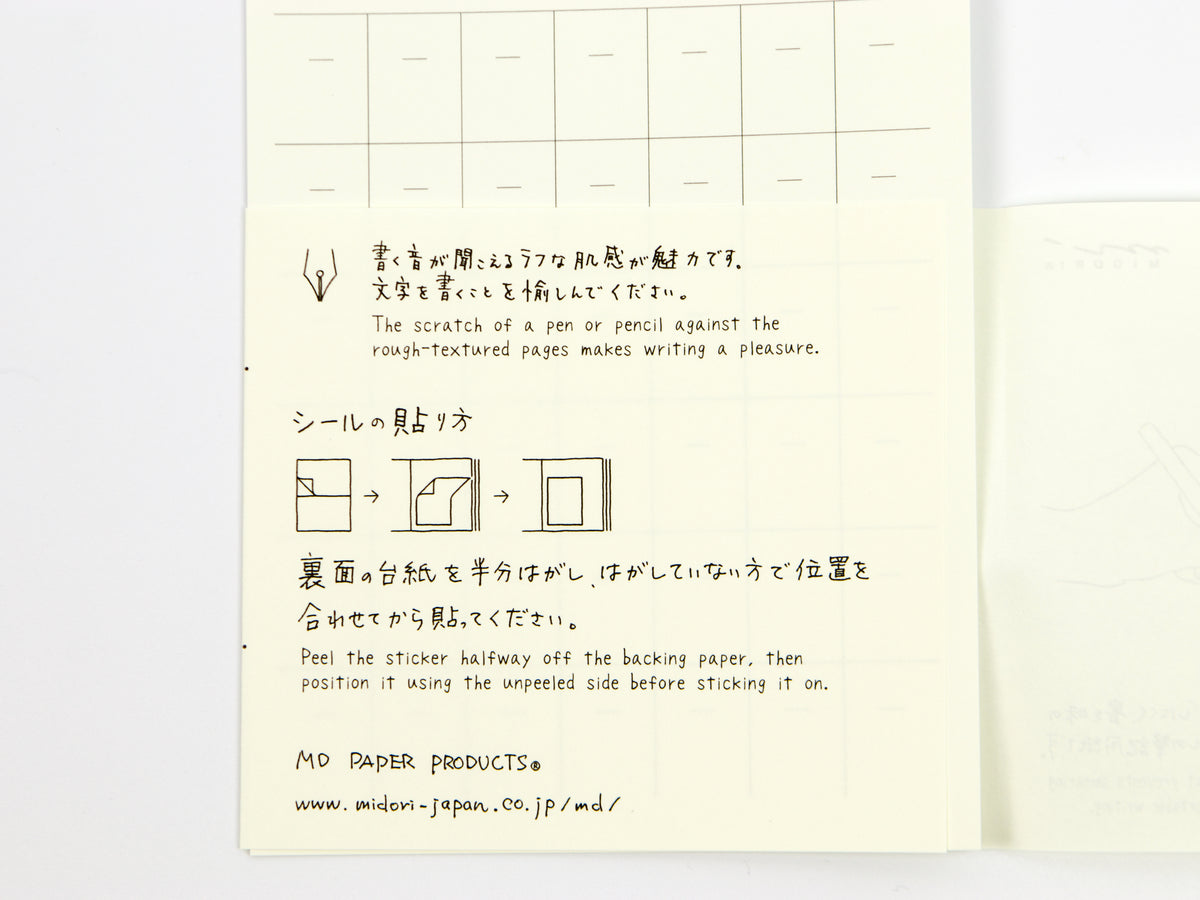 書く音が聞こえるラフな肌感が魅力です。
文字を書くことを愉しんでください。
The scratch of a pen or pencil against the
rough-textured pages makes writing a pleasure.
シールの貼り方
裏面の台紙を半分はがし、はがしていない方で位置を
合わせてから貼ってください。
Peel the sticker halfway off the backing paper, then
position it using the unpeeled side before sticking it on.
MD PAPER PRODUCTS®
www.midori-japan.co.jp/md/
MIDORI